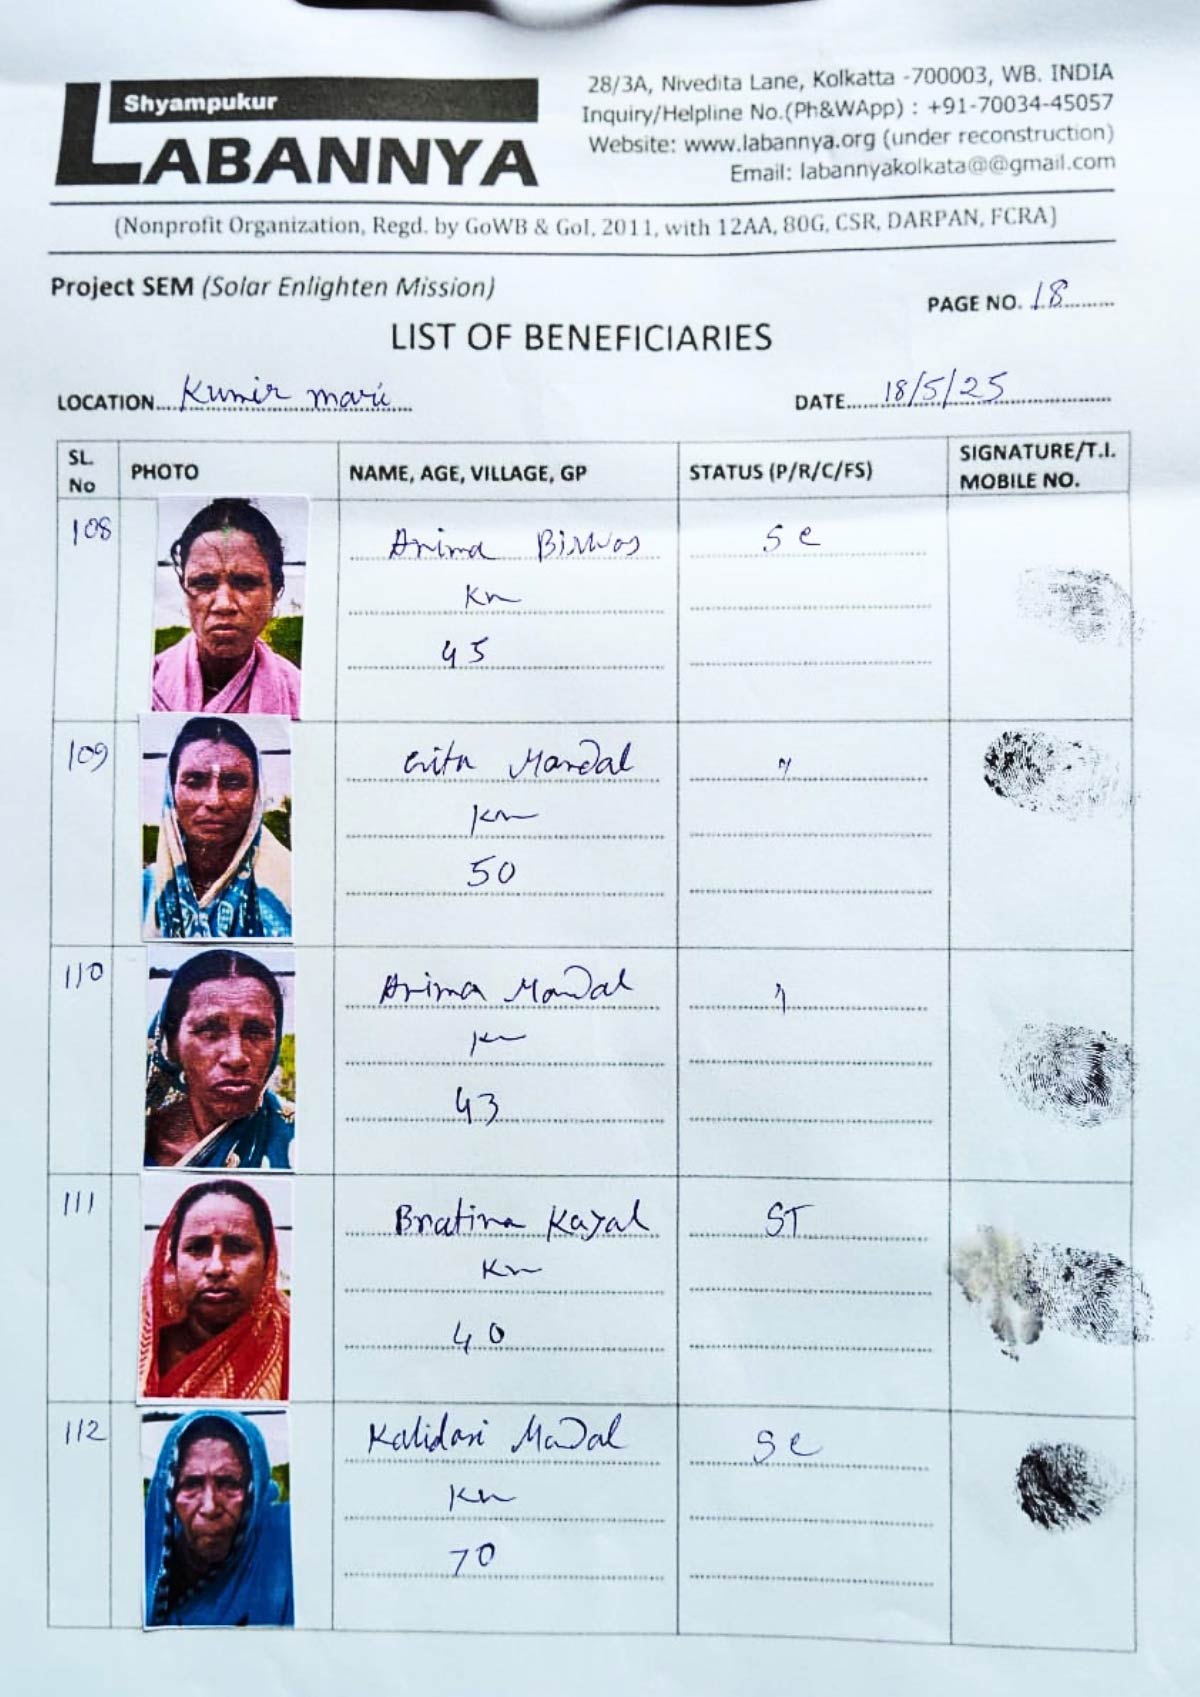 Shyampukur
LABANNYA
28/3A, Nivedita Lane, Kolkatta -700003, WB. INDIA
Inquiry/Helpline No.(Ph&WApp) : +91-70034-45057
Website: www.labannya.org (under reconstruction)
Email: labannyakolkata@@gmail.com
(Nonprofit Organization, Regd. by GoWB & GoI, 2011, with 12AA, 80G, CSR, DARPAN, FCRA)
Project SEM (Solar Enlighten Mission)
PAGE NO. 18
LIST OF BENEFICIARIES
LOCATION Kumir mari
DATE 18/5/25
SL. No PHOTO NAME, AGE, VILLAGE, GP STATUS (P/R/C/FS) SIGNATURE/T.I. MOBILE NO.
108 Anima Biswas SC
Km
45
109 Mandal "
Km
50
110 Anima Mondal "
Km
43
111 Kayal ST
Km
40
112 Kalidasi Mondal SC
Km
70